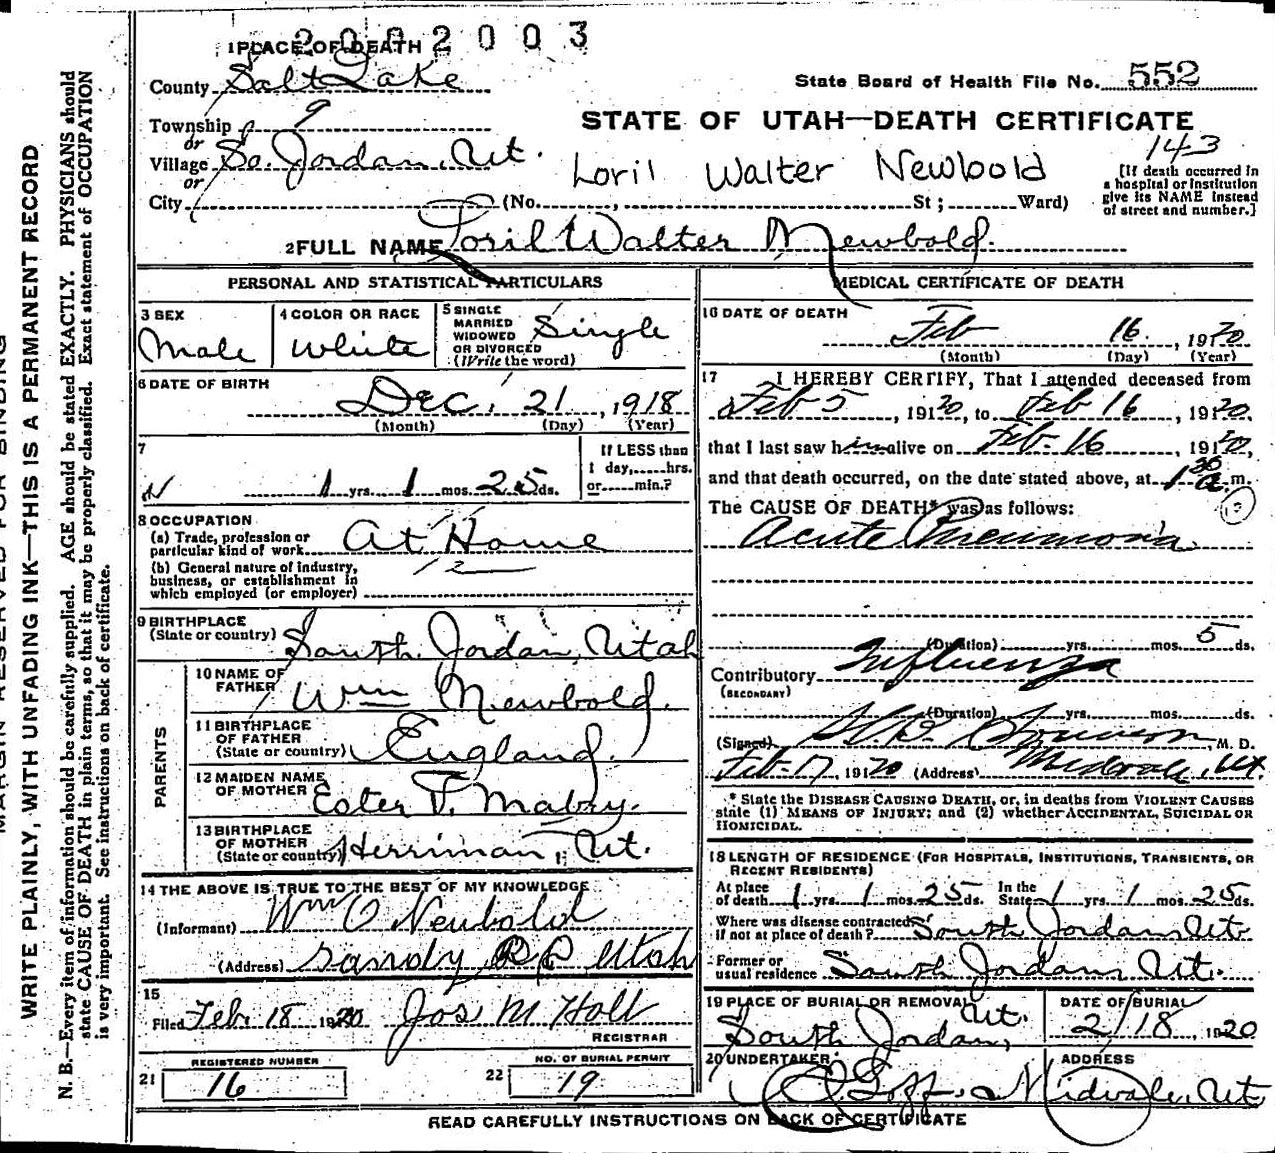 2002003
1 PLACE OF DEATH
County Salt Lake
State Board of Health File No. 552
Township 9
or
STATE OF UTAH—DEATH CERTIFICATE
143
Village So. Jordan, Ut.
or
Loril Walter Newbold
[If death occurred in a hospital or institution give its NAME instead of street and number.]
City (No. , St ; Ward)
2 FULL NAME Loril Walter Newbold.
PERSONAL AND STATISTICAL PARTICULARS
3 SEX
Male
4 COLOR OR RACE
White
5 SINGLE
MARRIED
WIDOWED
OR DIVORCED
(Write the word)
Single
6 DATE OF BIRTH
Dec. 21, 1918
(Month) (Day) (Year)
7
1 yrs. 1 mos. 25 ds.
If LESS than
1 day, hrs.
or min.?
8 OCCUPATION
(a) Trade, profession or
particular kind of work At Home
(b) General nature of industry,
business, or establishment in
which employed (or employer)
9 BIRTHPLACE
(State or country) South Jordan, Utah
PARENTS
10 NAME OF
FATHER Wm Newbold.
11 BIRTHPLACE
OF FATHER
(State or country) England.
12 MAIDEN NAME
OF MOTHER Ester F. Mabry.
13 BIRTHPLACE
OF MOTHER
(State or country) Herriman, Ut.
14 THE ABOVE IS TRUE TO THE BEST OF MY KNOWLEDGE
(Informant) Wm O Newbold
(Address) Sandy Utah
15
Filed Feb. 18 1920 Jos M Holt
REGISTRAR
REGISTERED NUMBER
21 16
NO. OF BURIAL PERMIT
22 19
MEDICAL CERTIFICATE OF DEATH
16 DATE OF DEATH
Feb 16, 1920
(Month) (Day) (Year)
17 I HEREBY CERTIFY, That I attended deceased from
Feb 5, 1920, to Feb 16, 1920.
that I last saw him alive on Feb. 16, 1920,
and that death occurred, on the date stated above, at 1 30 a.m.
The CAUSE OF DEATH* was as follows:
Acute Pneumonia
(Duration) yrs. mos. 5 ds.
Contributory Influenza
(SECONDARY)
(Duration) yrs. mos. ds.
(Signed) , M. D.
Feb. 17, 1920 (Address) Midvale, Ut.
* State the DISEASE CAUSING DEATH, or, in deaths from VIOLENT CAUSES
state (1) MEANS OF INJURY; and (2) whether ACCIDENTAL, SUICIDAL OR
HOMICIDAL.
18 LENGTH OF RESIDENCE (FOR HOSPITALS, INSTITUTIONS, TRANSIENTS, OR
RECENT RESIDENTS)
At place
of death 1 yrs. 1 mos. 25 ds. In the
State 1 yrs. 1 mos. 25 ds.
Where was disease contracted,
if not at place of death? South Jordan Ut.
Former or
usual residence South Jordan, Ut.
19 PLACE OF BURIAL OR REMOVAL
South Jordan, Ut.
DATE OF BURIAL
2/18, 1920
20 UNDERTAKER
Goff
ADDRESS
Midvale, Ut
READ CAREFULLY INSTRUCTIONS ON BACK OF CERTIFICATE
MARGIN RESERVED FOR BINDING
WRITE PLAINLY, WITH UNFADING INK—THIS IS A PERMANENT RECORD
N. B.—Every item of information should be carefully supplied. AGE should be stated EXACTLY. PHYSICIANS should
state CAUSE OF DEATH in plain terms, so that it may be properly classified. Exact statement of OCCUPATION
is very important. See instructions on back of certificate.